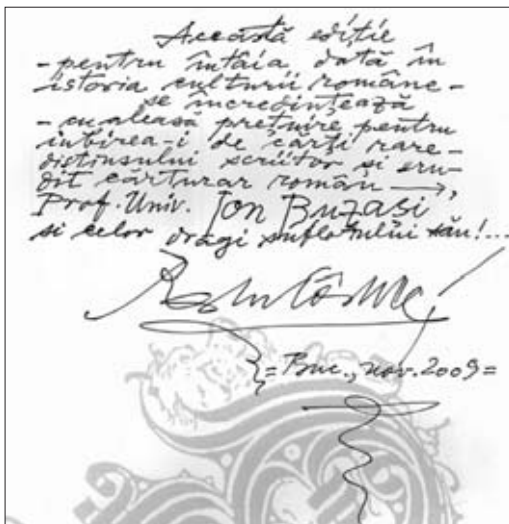 Această ediție
- pentru întâia dată în
istoria culturii române -
se încredințează
- cu aleasă prețuire pentru
iubirea-i de cărți rare -
distinsului scriitor și eru-
dit cărturar român →,
Prof. Univ. Ion Buzași
și celor dragi sufletului său!...
= Buc., nov. 2009 =